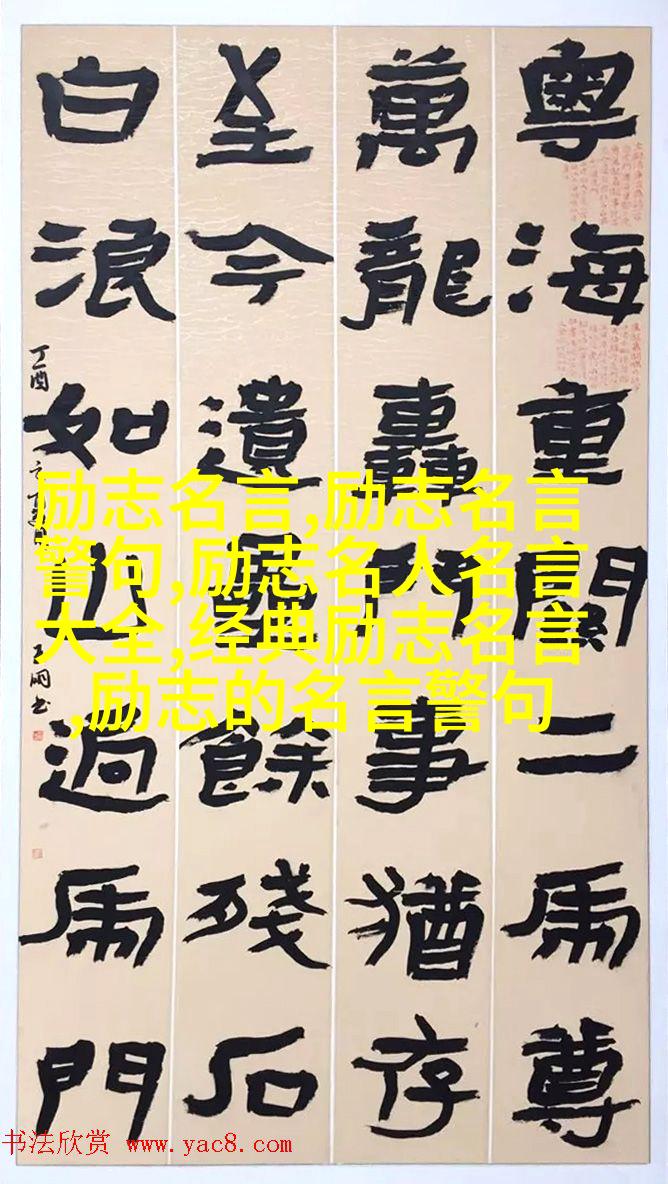 粵海重關二虎尊
萬龍轟鬥事猶存
至今遺壘餘殘石
白浪如山過虎門
丁酉
励志名言,励志名言
警句,励志名人名言
大全,经典励志名言
,励志的名言警句
书法欣赏 www.yac8.com